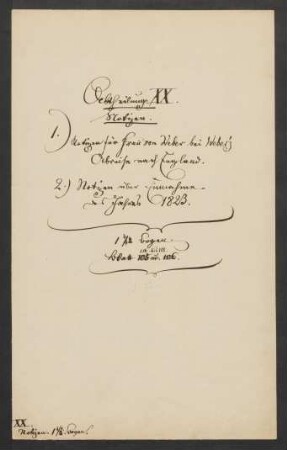 Abtheilung XX.
Notizen.
1.) Notizen für Frau von Weber bei Weber's
Abreise nach England.
2.) Notizen über Einnahme
des Jahres 1823.
1 1/2 Bogen.
Blatt 105 u. 106.
XX.
Notizen. 1 1/2 Bogen.